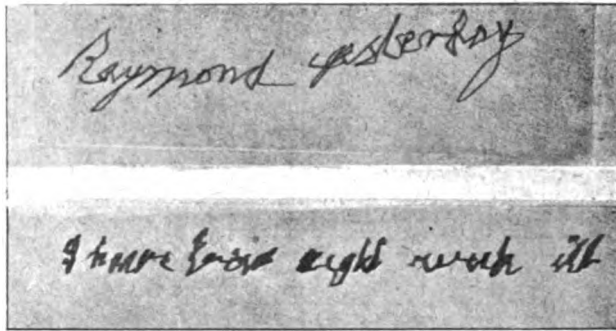 Raymond yesterday
I have eight week ill